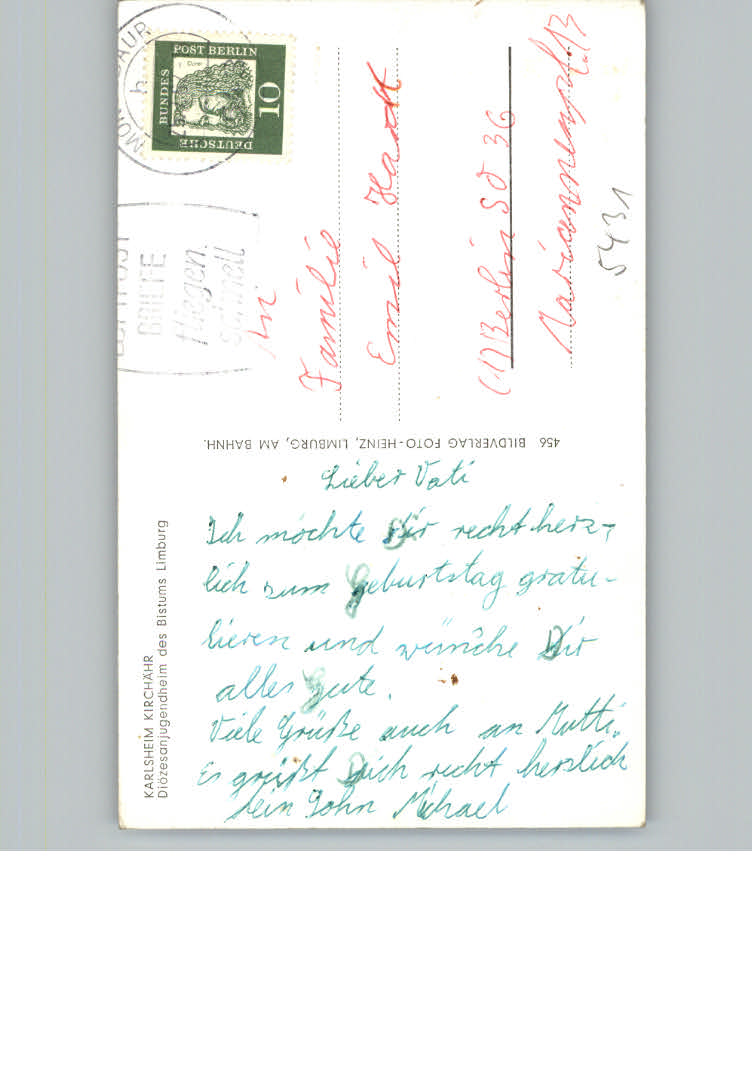 Lieber Vati
Ich möchte Dir recht herz-
lich zum Geburtstag gratu-
lieren und wünsche Dir
alles Gute.
Viele Grüße auch an Mutti.
Es grüßt Dich recht herzlich
Dein Sohn Michael
An
Familie
Emil Hardt
(1) Berlin SO 36
Mariannenpl. 13
5431
DEUTSCHE
BUNDES
POST BERLIN
10
LUFTPOST
BRIEFE
fliegen
schnell
456 BILDVERLAG FOTO-HEINZ, LIMBURG, AM BAHNH.
KARLSHEIM KIRCHÄHR
Diözesanjugendheim des Bistums Limburg